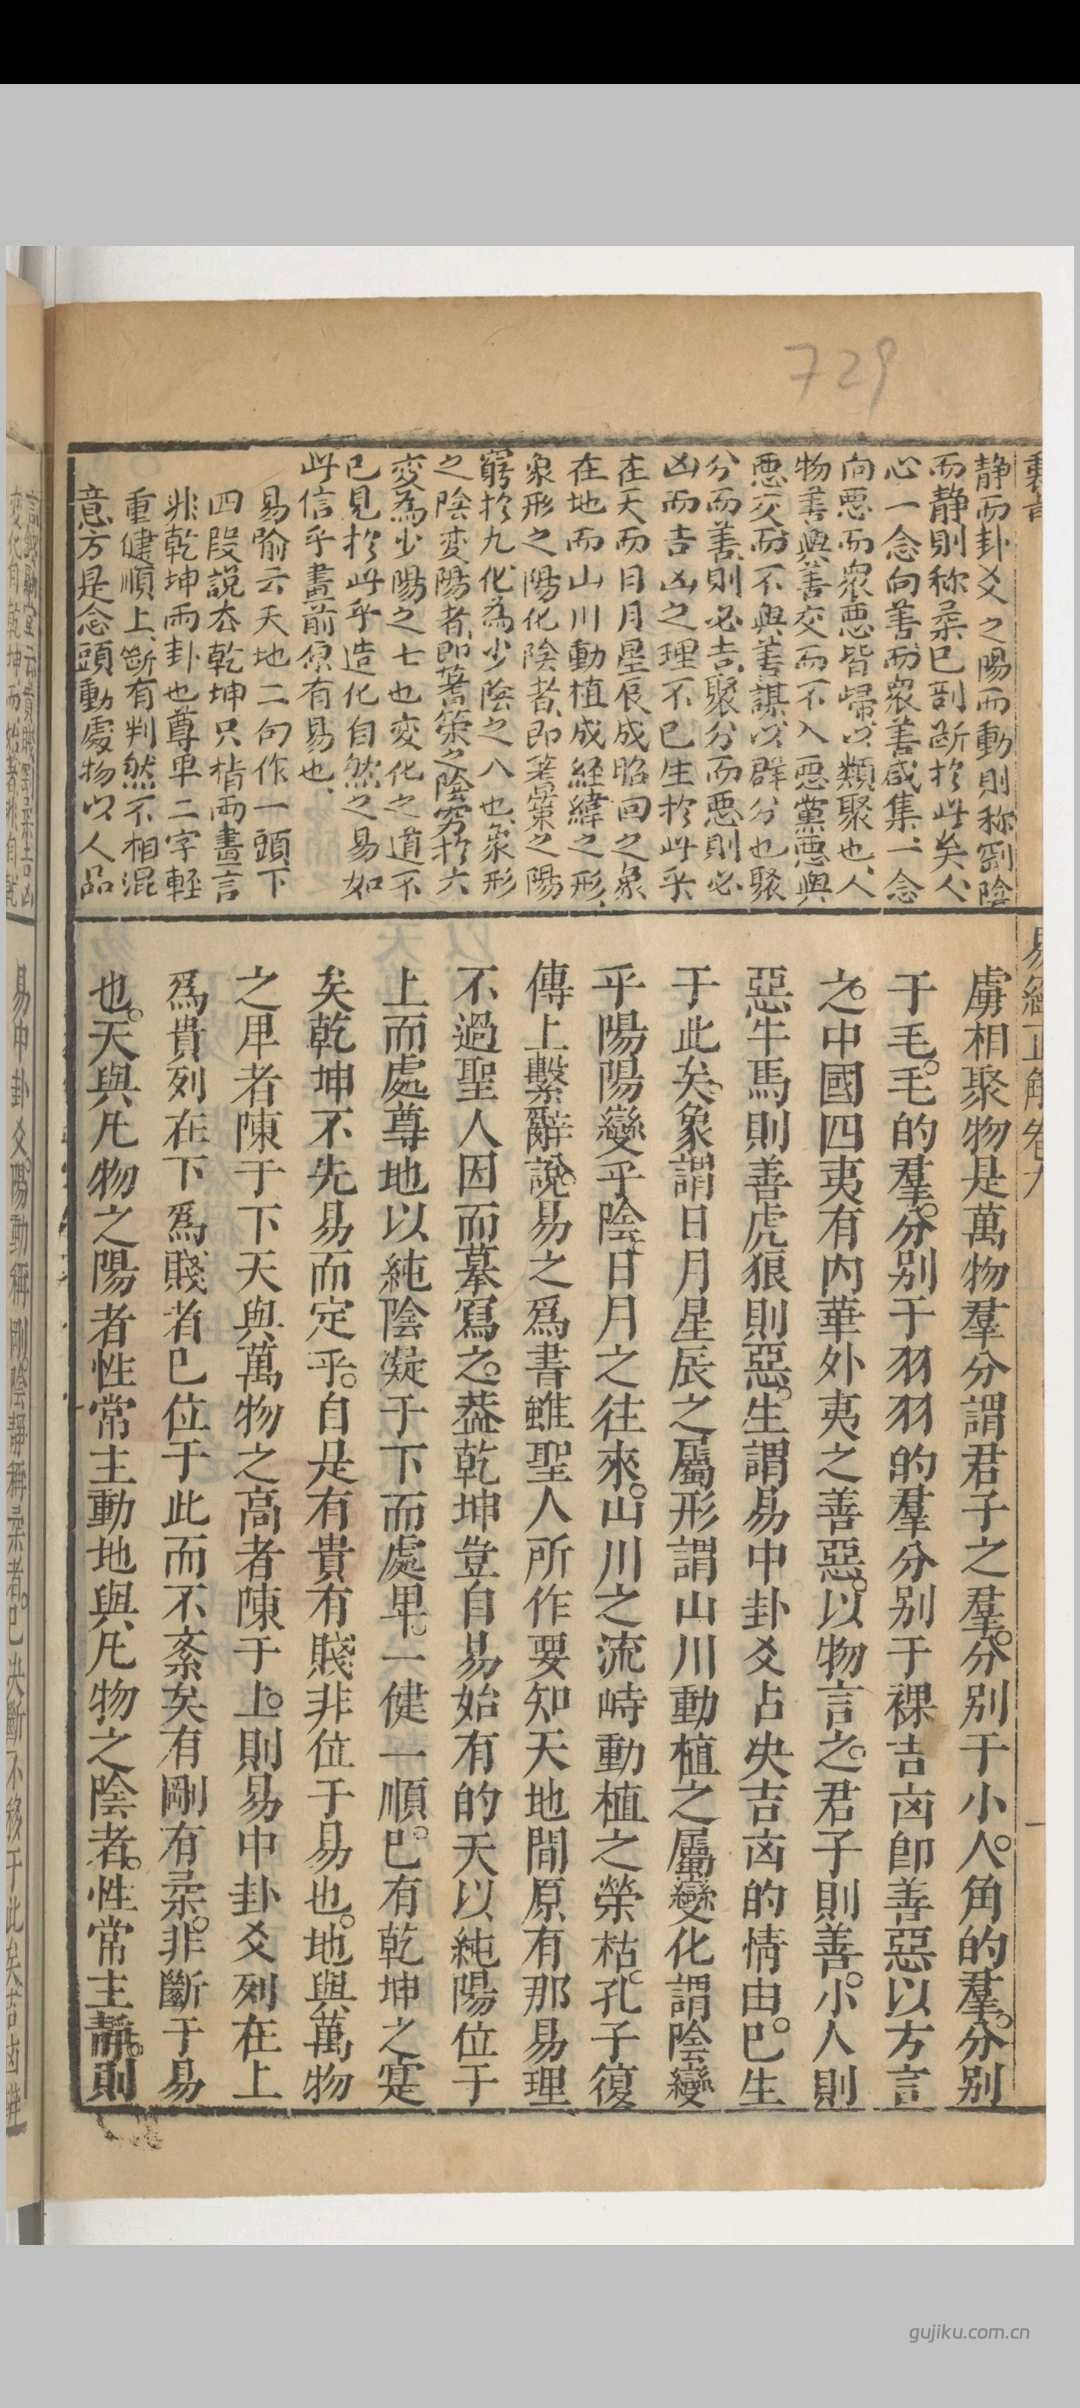 729
靜而卦爻之陽而動則称剛陰
而靜則称柔已剖斷於此矣人
心一念向善而衆善咸集一念
向惡而衆惡皆歸以類聚也人
物善與善交而不入惡黨惡與
惡交而不與善謀以群分也聚
分而善則必吉聚分而惡則必
凶而吉凶之理不已生於此乎
在天而日月星辰成昭回之象
在地而山川動植成経緯之形
象形之陽化陰者即蓍策之陽
窮於九化為少陰之八也象形
之陰变陽者即蓍策之陰窮於六
变為少陽之七也变化之道不
已見於此乎造化自然之易如
此信乎畫前原有易也
易喻云天地二句作一頭下
四段說太乾坤只指兩畫言
非乾坤兩卦也尊卑二字輕
重健順上斷有判然不相混
意方是念頭動處物以人品
易經正解卷九
虜相聚物是萬物羣分謂君子之羣分别于小人角的羣分别
于毛毛的羣分别于羽羽的羣分别于裸吉凶卽善惡以方言
之中國四夷有内華外夷之善惡以物言之君子則善小人則
惡牛馬則善虎狼則惡生謂易中卦爻占决吉凶的情由已生
于此矣象謂日月星辰之屬形謂山川動植之屬變化謂陰變
乎陽陽變乎陰日月之往來山川之流峙動植之榮枯孔子復
傳上繫辭說易之爲書雖聖人所作要知天地間原有那易理
不過聖人因而摹寫之葢乾坤豈自易始有的天以純陽位于
上而處尊地以純陰凝于下而處卑一健一順已有乾坤之定
矣乾坤不先易而定乎自是有貴有賤非位于易也地與萬物
之卑者陳于下天與萬物之高者陳于上則易中卦爻列在上
爲貴列在下爲賤者已位于此而不紊矣有剛有柔非斷于易
也天與凡物之陽者性常主動地與凡物之陰者性常主靜則
易中卦爻陽動稱剛陰靜稱柔者已决斷不移于此矣吉凶非
gujiku.com.cn